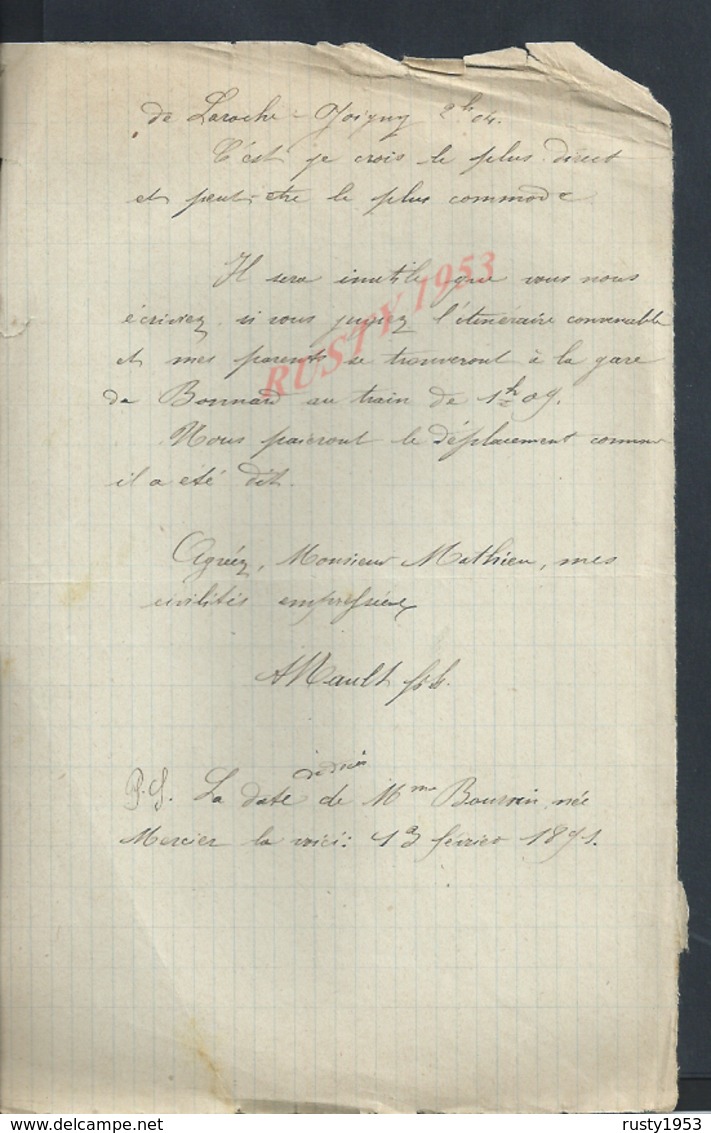 de Laroche-Joigny 2h 04.
C'est je crois le plus direct
et peut-etre le plus commode
Il sera inutile que vous nous
écriviez, si vous jugez l'itinéraire convenable
et mes parents se trouveront à la gare
de Bonnard au train de 1h 09.
Nous paieront le déplacement comme
il a été dit.
Agréez, Monsieur Mathieu, mes
civilités empressées
fils.
P.S. La date de Mme née
Mercier la voici: 13 février 1891.
RUSTY 1953
rusty1953